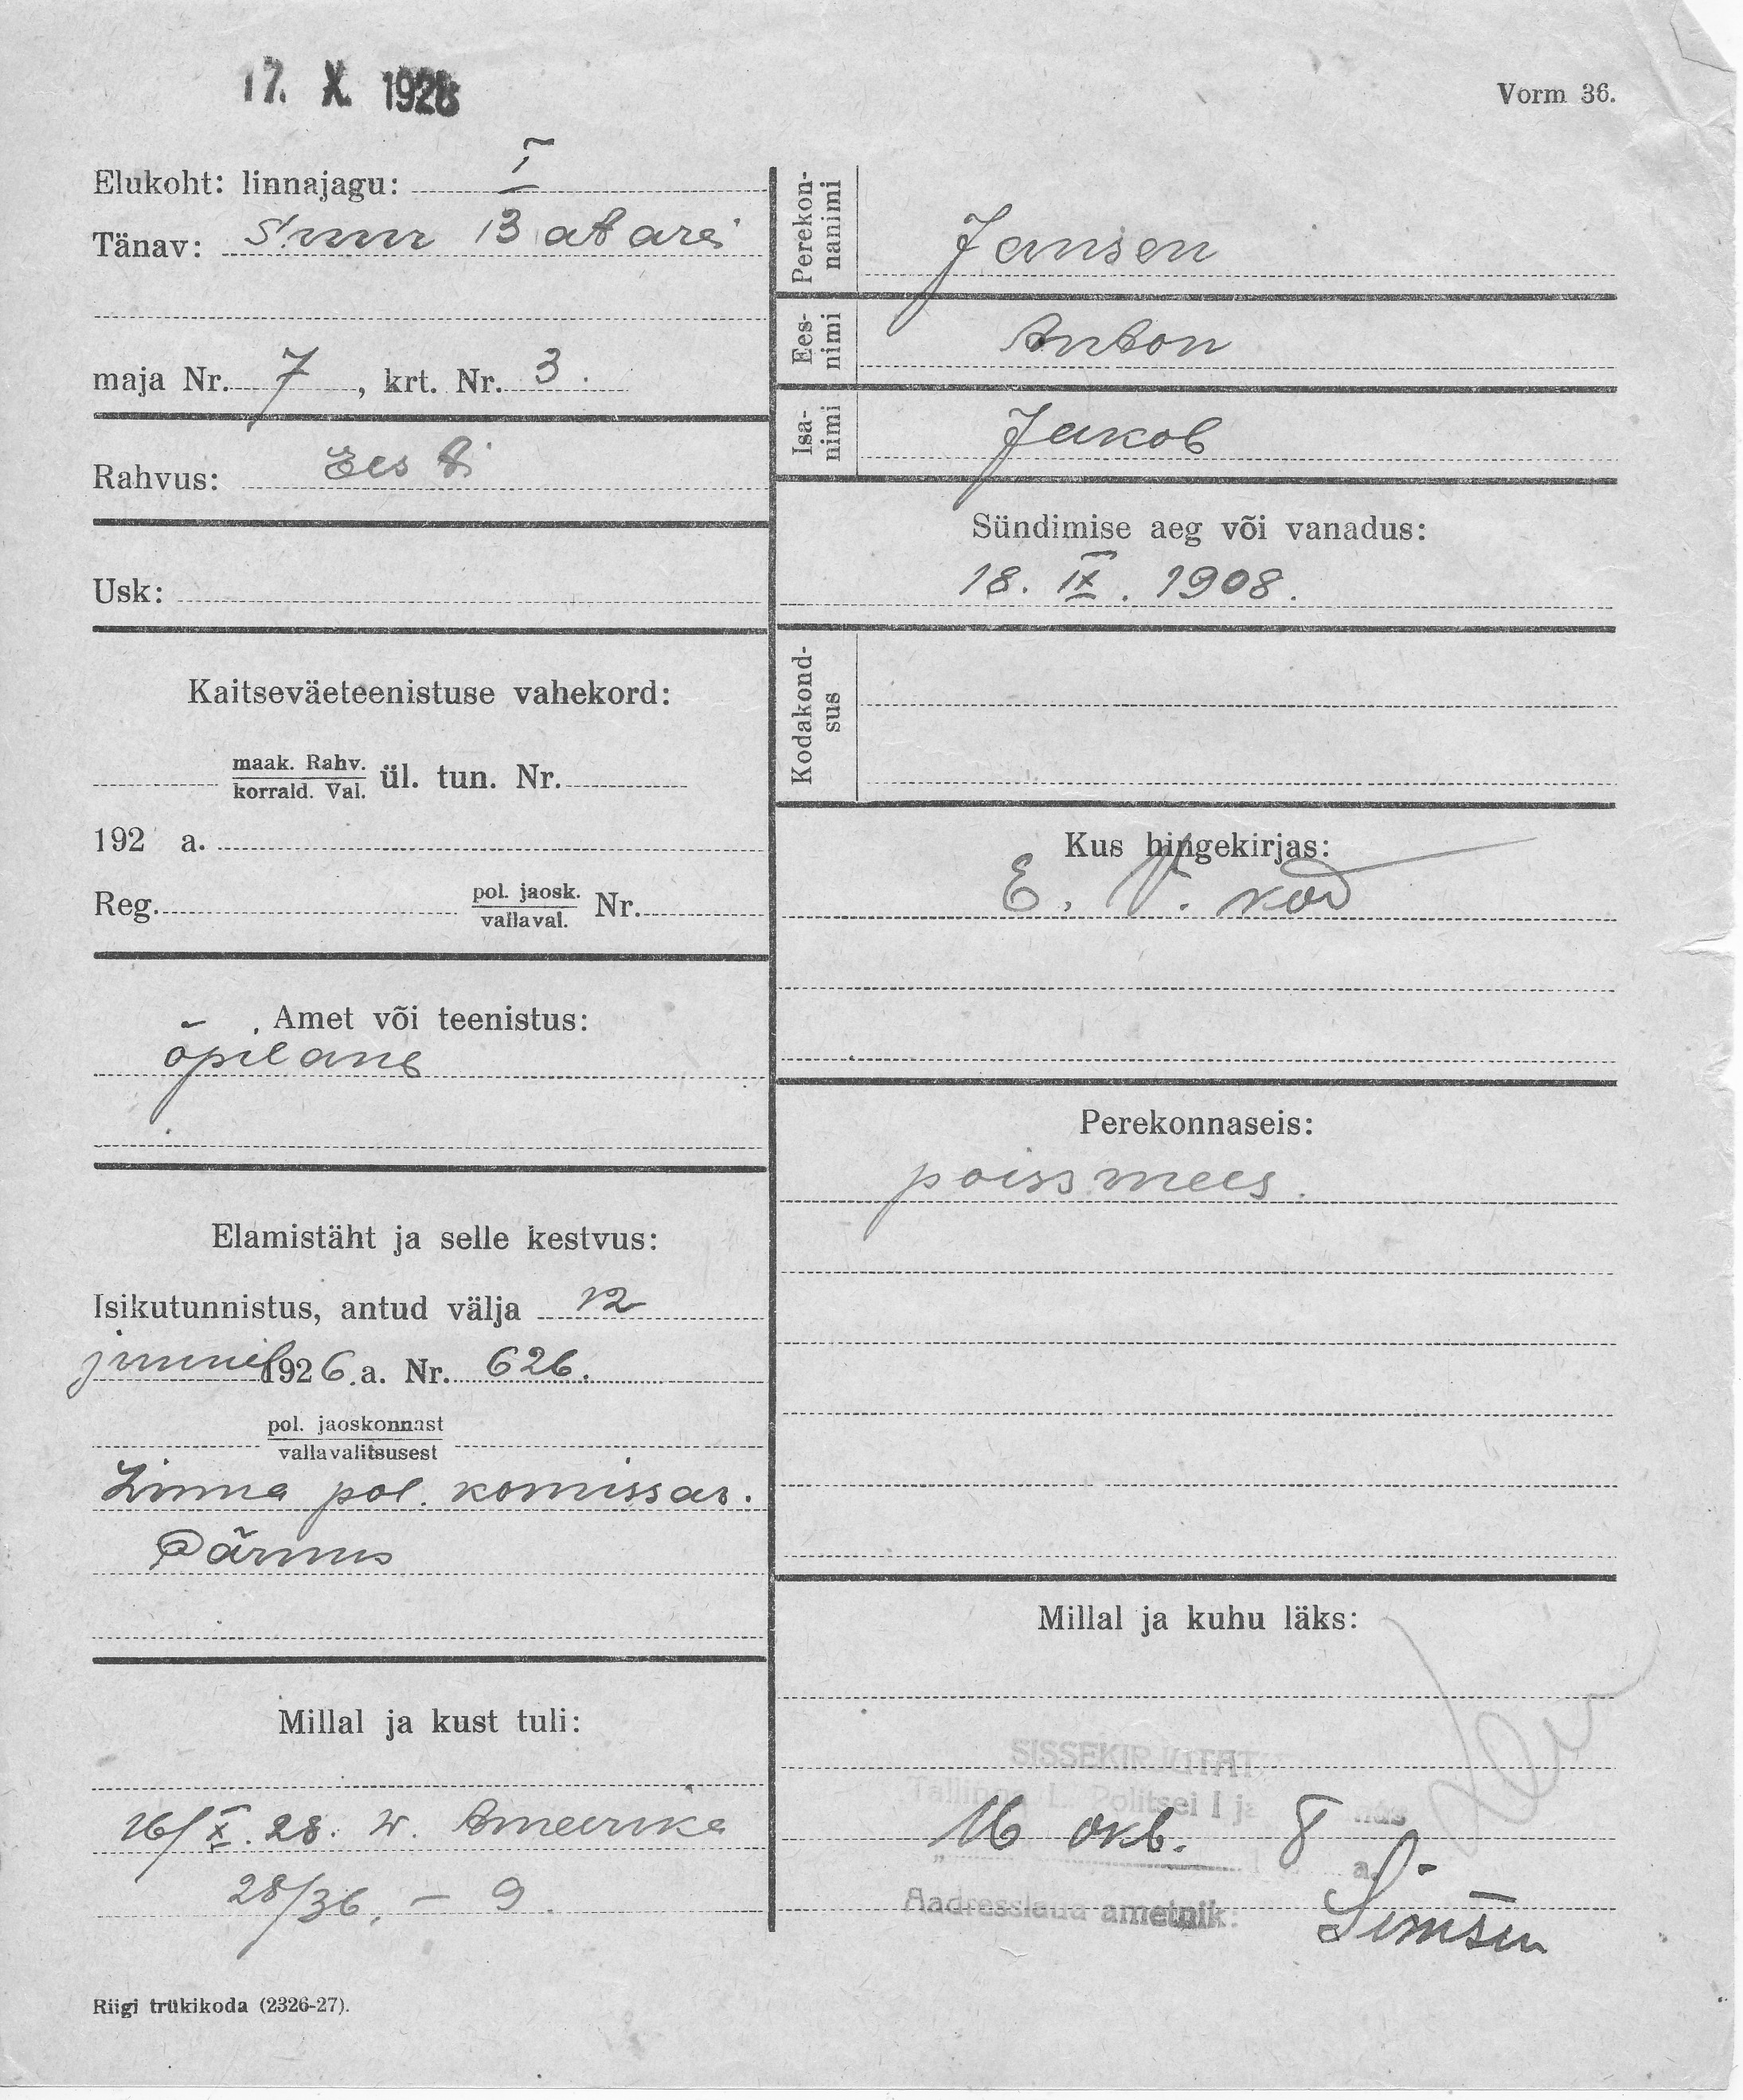 17. X. 1928
Vorm 36.
Elukoht: linnajagu: I
Tänav: Suur Batarei
maja Nr. 7, krt. Nr. 3.
Rahvus: Eesti
Usk:
Kaitseväeteenistuse vahekord:
maak. Rahv.
korrald. Val. ül. tun. Nr.
192 a.
Reg. pol. jaosk.
vallaval. Nr.
Amet või teenistus:
õpilane
Elamistäht ja selle kestvus:
Isikutunnistus, antud välja 12
juunil 1926.a. Nr. 626.
pol. jaoskonnast
vallavalitsusest
Linna pol. komissar.
Pärnus
Millal ja kust tuli:
16/X.28. Ameerika
28/36. — 9.
Riigi trükikoda (2326-27).
Perekonnanimi
Jansen
Eesnimi
Anton
Isanimi
Jakob
Sündimise aeg või vanadus:
18. IX. 1908.
Kodakondsus
Kus hingekirjas:
E. V. kod
Perekonnaseis:
poissmees.
Millal ja kuhu läks:
SISSEKIRJUTAT
Tallinna L. Politsei I
16 okt. 8 a.
Aadresslaua ametnik: